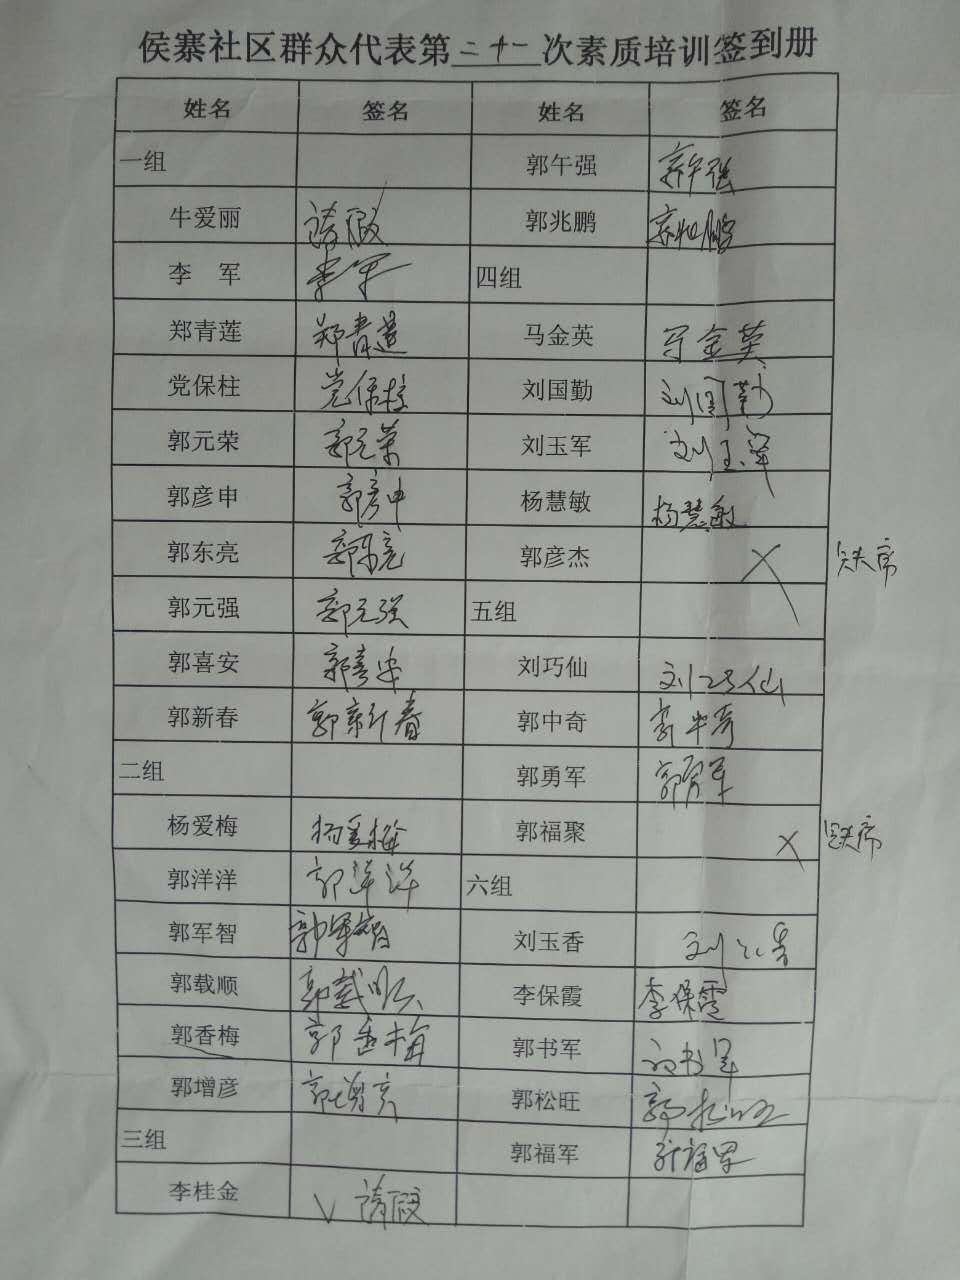 侯寨社区群众代表第二十一次素质培训签到册
姓名 签名 姓名 签名
一组 郭午强 郭午强
牛爱丽 请假 郭兆鹏 郭兆鹏
李 军 李军 四组
郑青莲 郑青莲 马金英 马金英
党保柱 党保柱 刘国勤 刘国勤
郭元荣 郭元荣 刘玉军 刘玉军
郭彦申 郭彦申 杨慧敏 杨慧敏
郭东亮 郭东亮 郭彦杰 X 缺席
郭元强 郭元强 五组
郭喜安 郭喜安 刘巧仙 刘巧仙
郭新春 郭新春 郭中奇 郭中奇
二组 郭勇军 郭勇军
杨爱梅 杨爱梅 郭福聚 X 缺席
郭洋洋 郭洋洋 六组
郭军智 郭军智 刘玉香 刘玉香
郭载顺 郭载顺 李保霞 李保霞
郭香梅 郭香梅 郭书军 郭书军
郭增彦 郭增彦 郭松旺 郭松旺
三组 郭福军 郭福军
李桂金 √ 请假